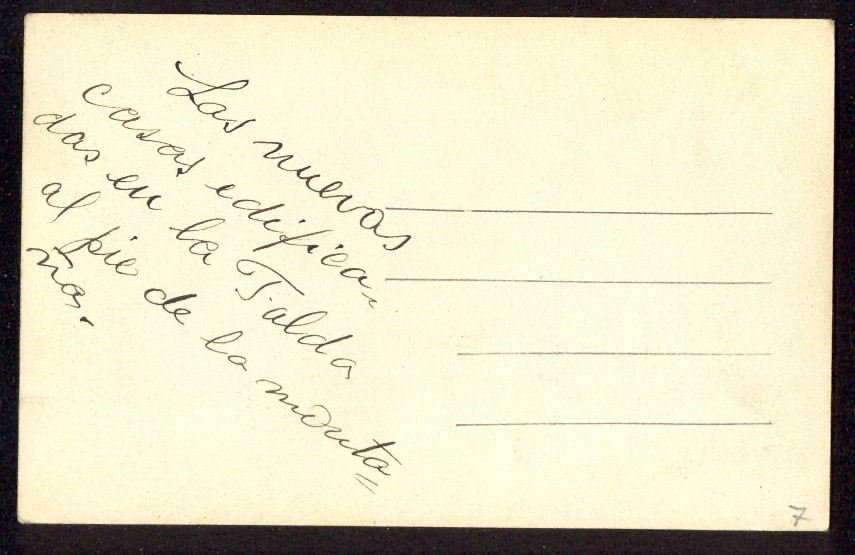 Las nuevas
casas edifica-
das en la Falda
al pie de la monta=
ña.
7